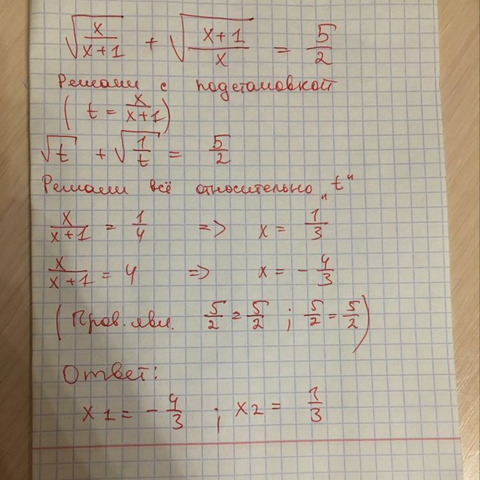 √(x/(x+1)) + √((x+1)/x) = 5/2
Решаем с подстановкой
(t = x/(x+1))
√t + √(1/t) = 5/2
Решаем всё относительно „t"
x/(x+1) = 1/4 => x = 1/3
x/(x+1) = 4 => x = - 4/3
(Пров. явл. 5/2 = 5/2 ; 5/2 = 5/2)
Ответ:
x1 = - 4/3 ; x2 = 1/3